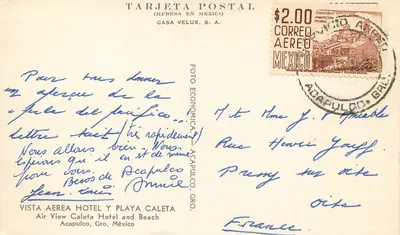 TARJETA POSTAL
IMPRESA EN MEXICO
CASA VELUX, S. A.
$2.00
CORREO
AEREO
MEXICO
SERVICIO AEREO
ACAPULCO, GRO.
FOTO ECONOMICA ACAPULCO, GRO.
Pour vous donner
un aperçu de la
perle del pacifico...
lettre suit (très rapidement)
Nous allons bien. Nous
espérons qu'il en est de même
pour vous.
Besos de Acapulco
Jean-Louis Annie
Mt Mme J.
Rue Henri
Precy sur Oise
Oise
France
VISTA AEREA HOTEL Y PLAYA CALETA
Air View Caleta Hotel and Beach
Acapulco, Gro, México